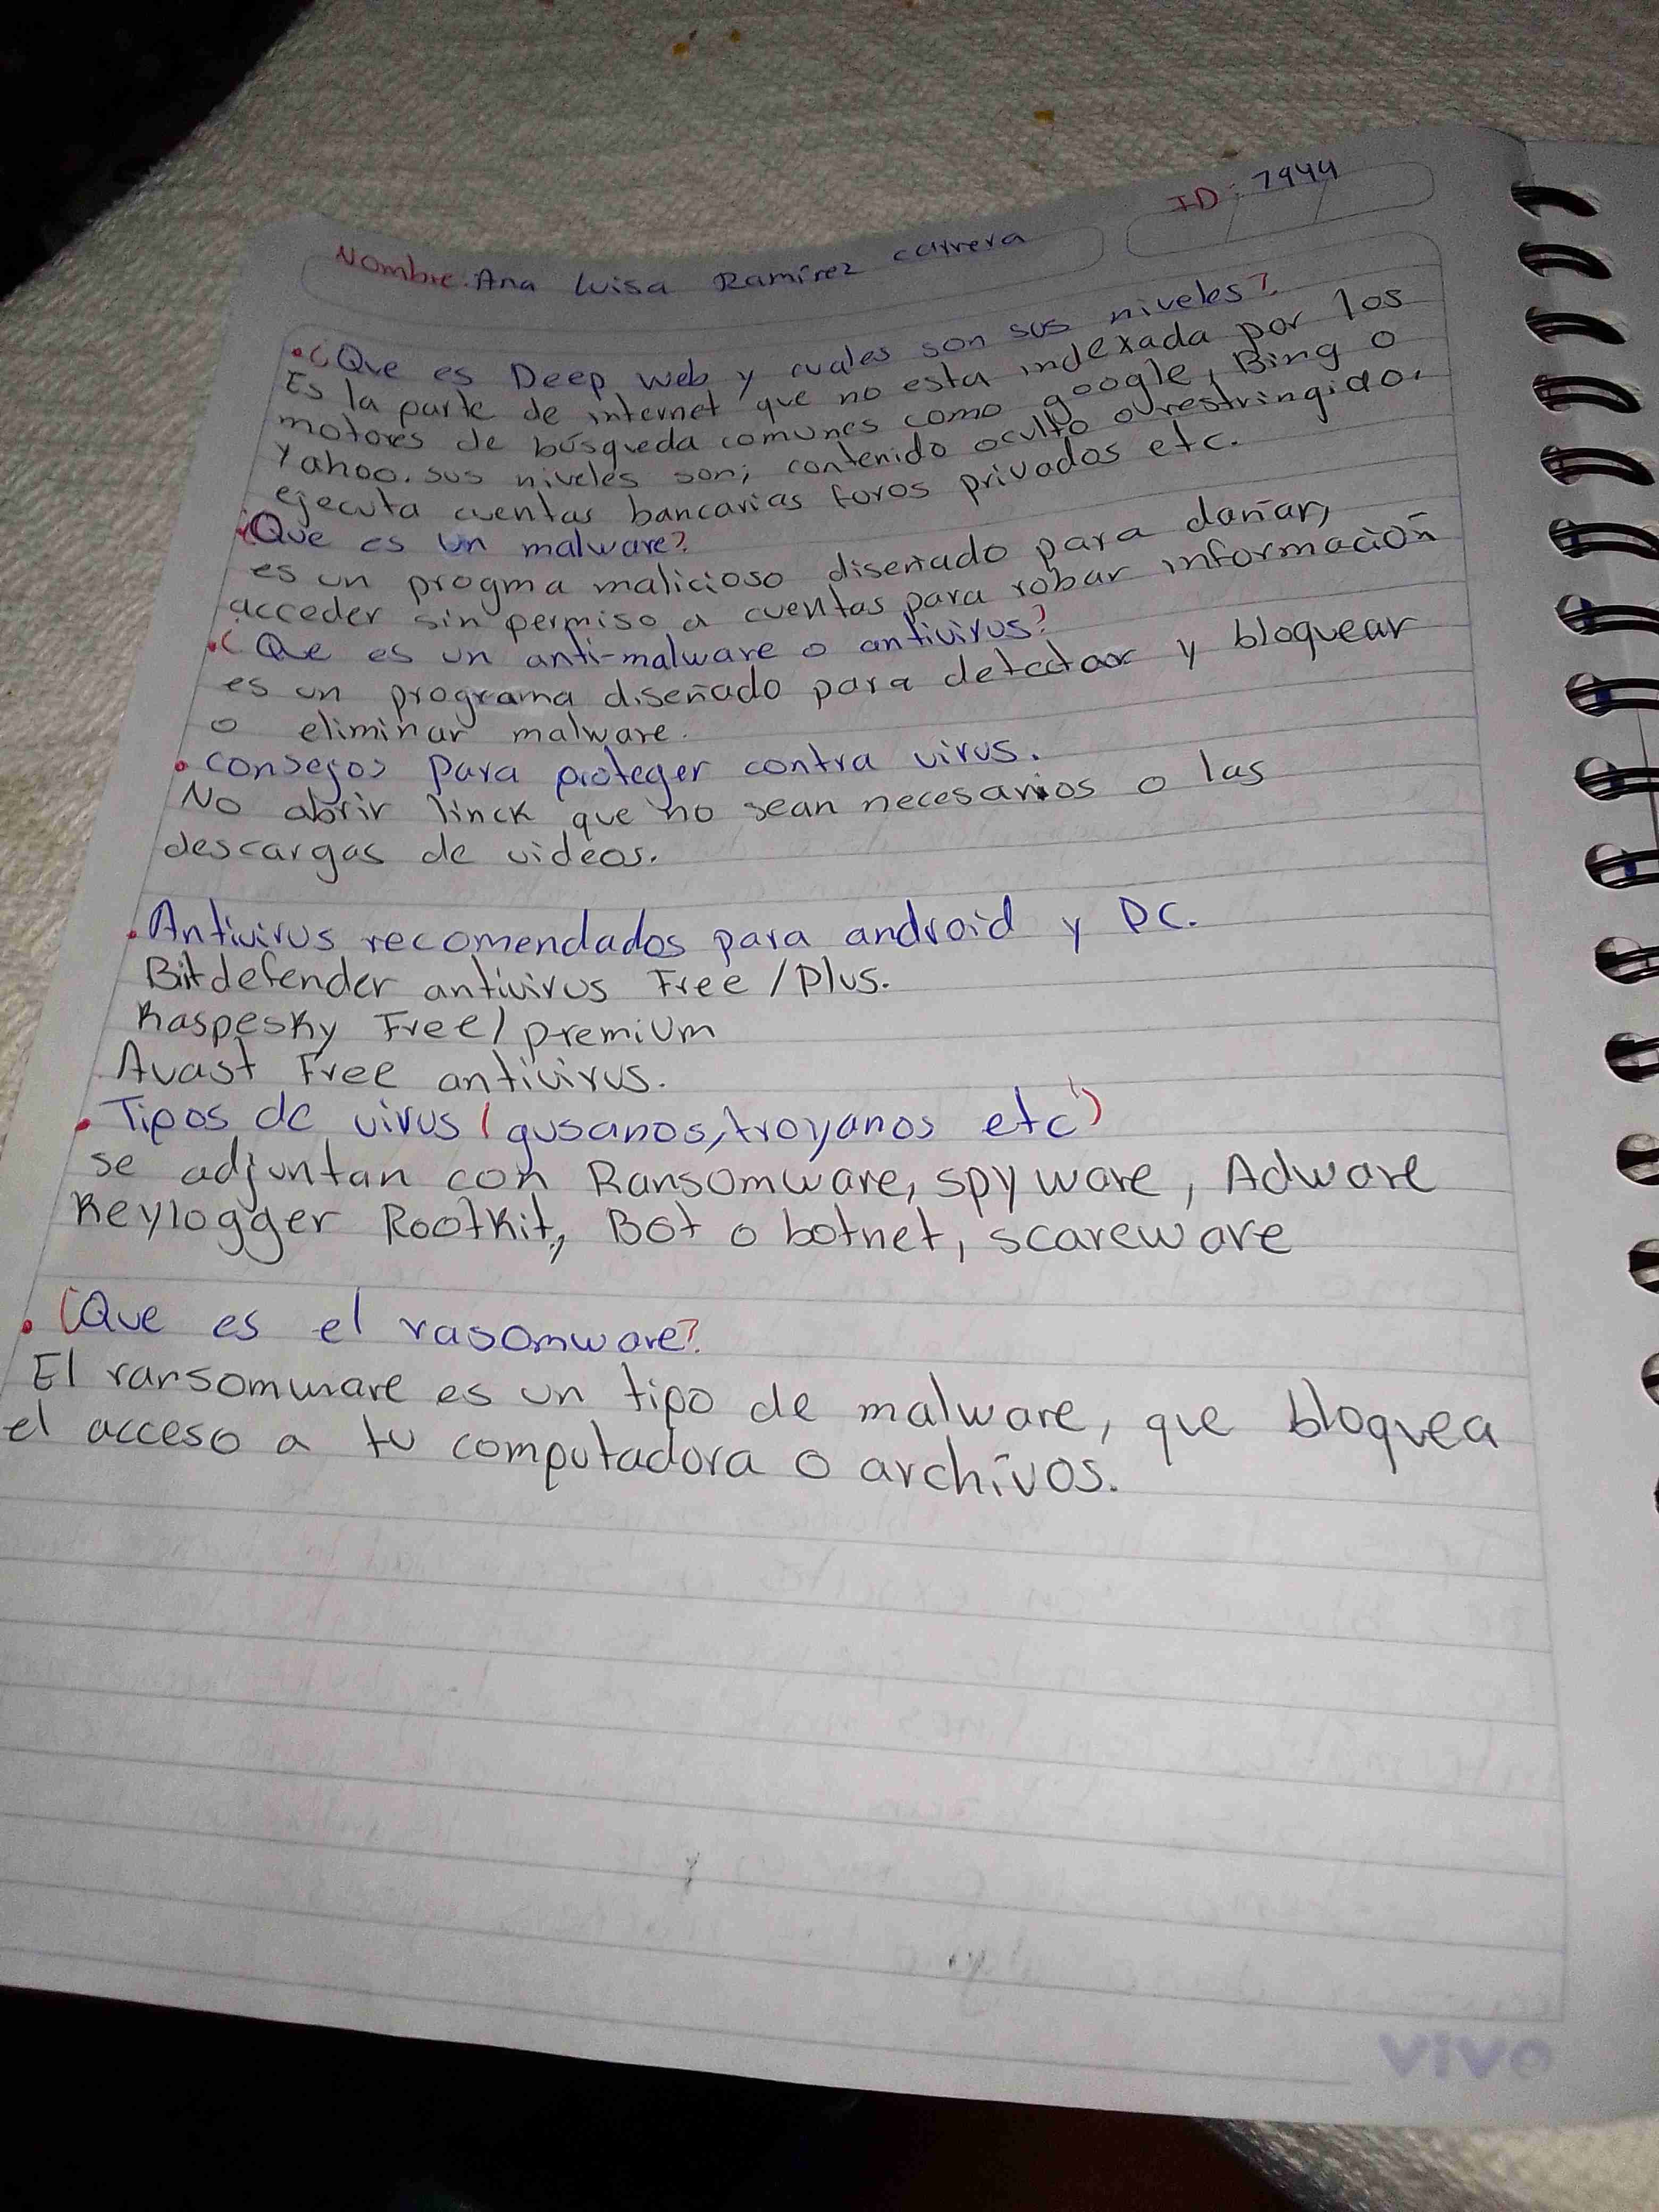 Nombre: Ana Luisa Ramírez carrera
ID: 7944
• ¿Que es Deep web y cuales son sus niveles?
Es la parte de internet que no esta indexada por los
motores de búsqueda comunes como google, Bing o
Yahoo. sus niveles son; contenido oculto o restringido.
ejecuta cuentas bancarias foros privados etc.
• ¿Que es un malware?
es un progma malicioso diseñado para dañar,
acceder sin permiso a cuentas para robar información
• ¿Que es un anti-malware o antivirus?
es un programa diseñado para detectar y bloquear
o eliminar malware.
• consejos para proteger contra virus.
No abrir linck que no sean necesarios o las
descargas de videos.
• Antivirus recomendados para android y PC.
Bitdefender antivirus Free / Plus.
Kaspesky Free / premium
Avast Free antivirus.
• Tipos de virus (gusanos, troyanos etc)
se adjuntan con Ransomware, spyware, Adware
Keylogger Rootkit, Bot o botnet, scareware
• ¿Que es el rasomware?
El ransomware es un tipo de malware, que bloquea
el acceso a tu computadora o archivos.
vivo